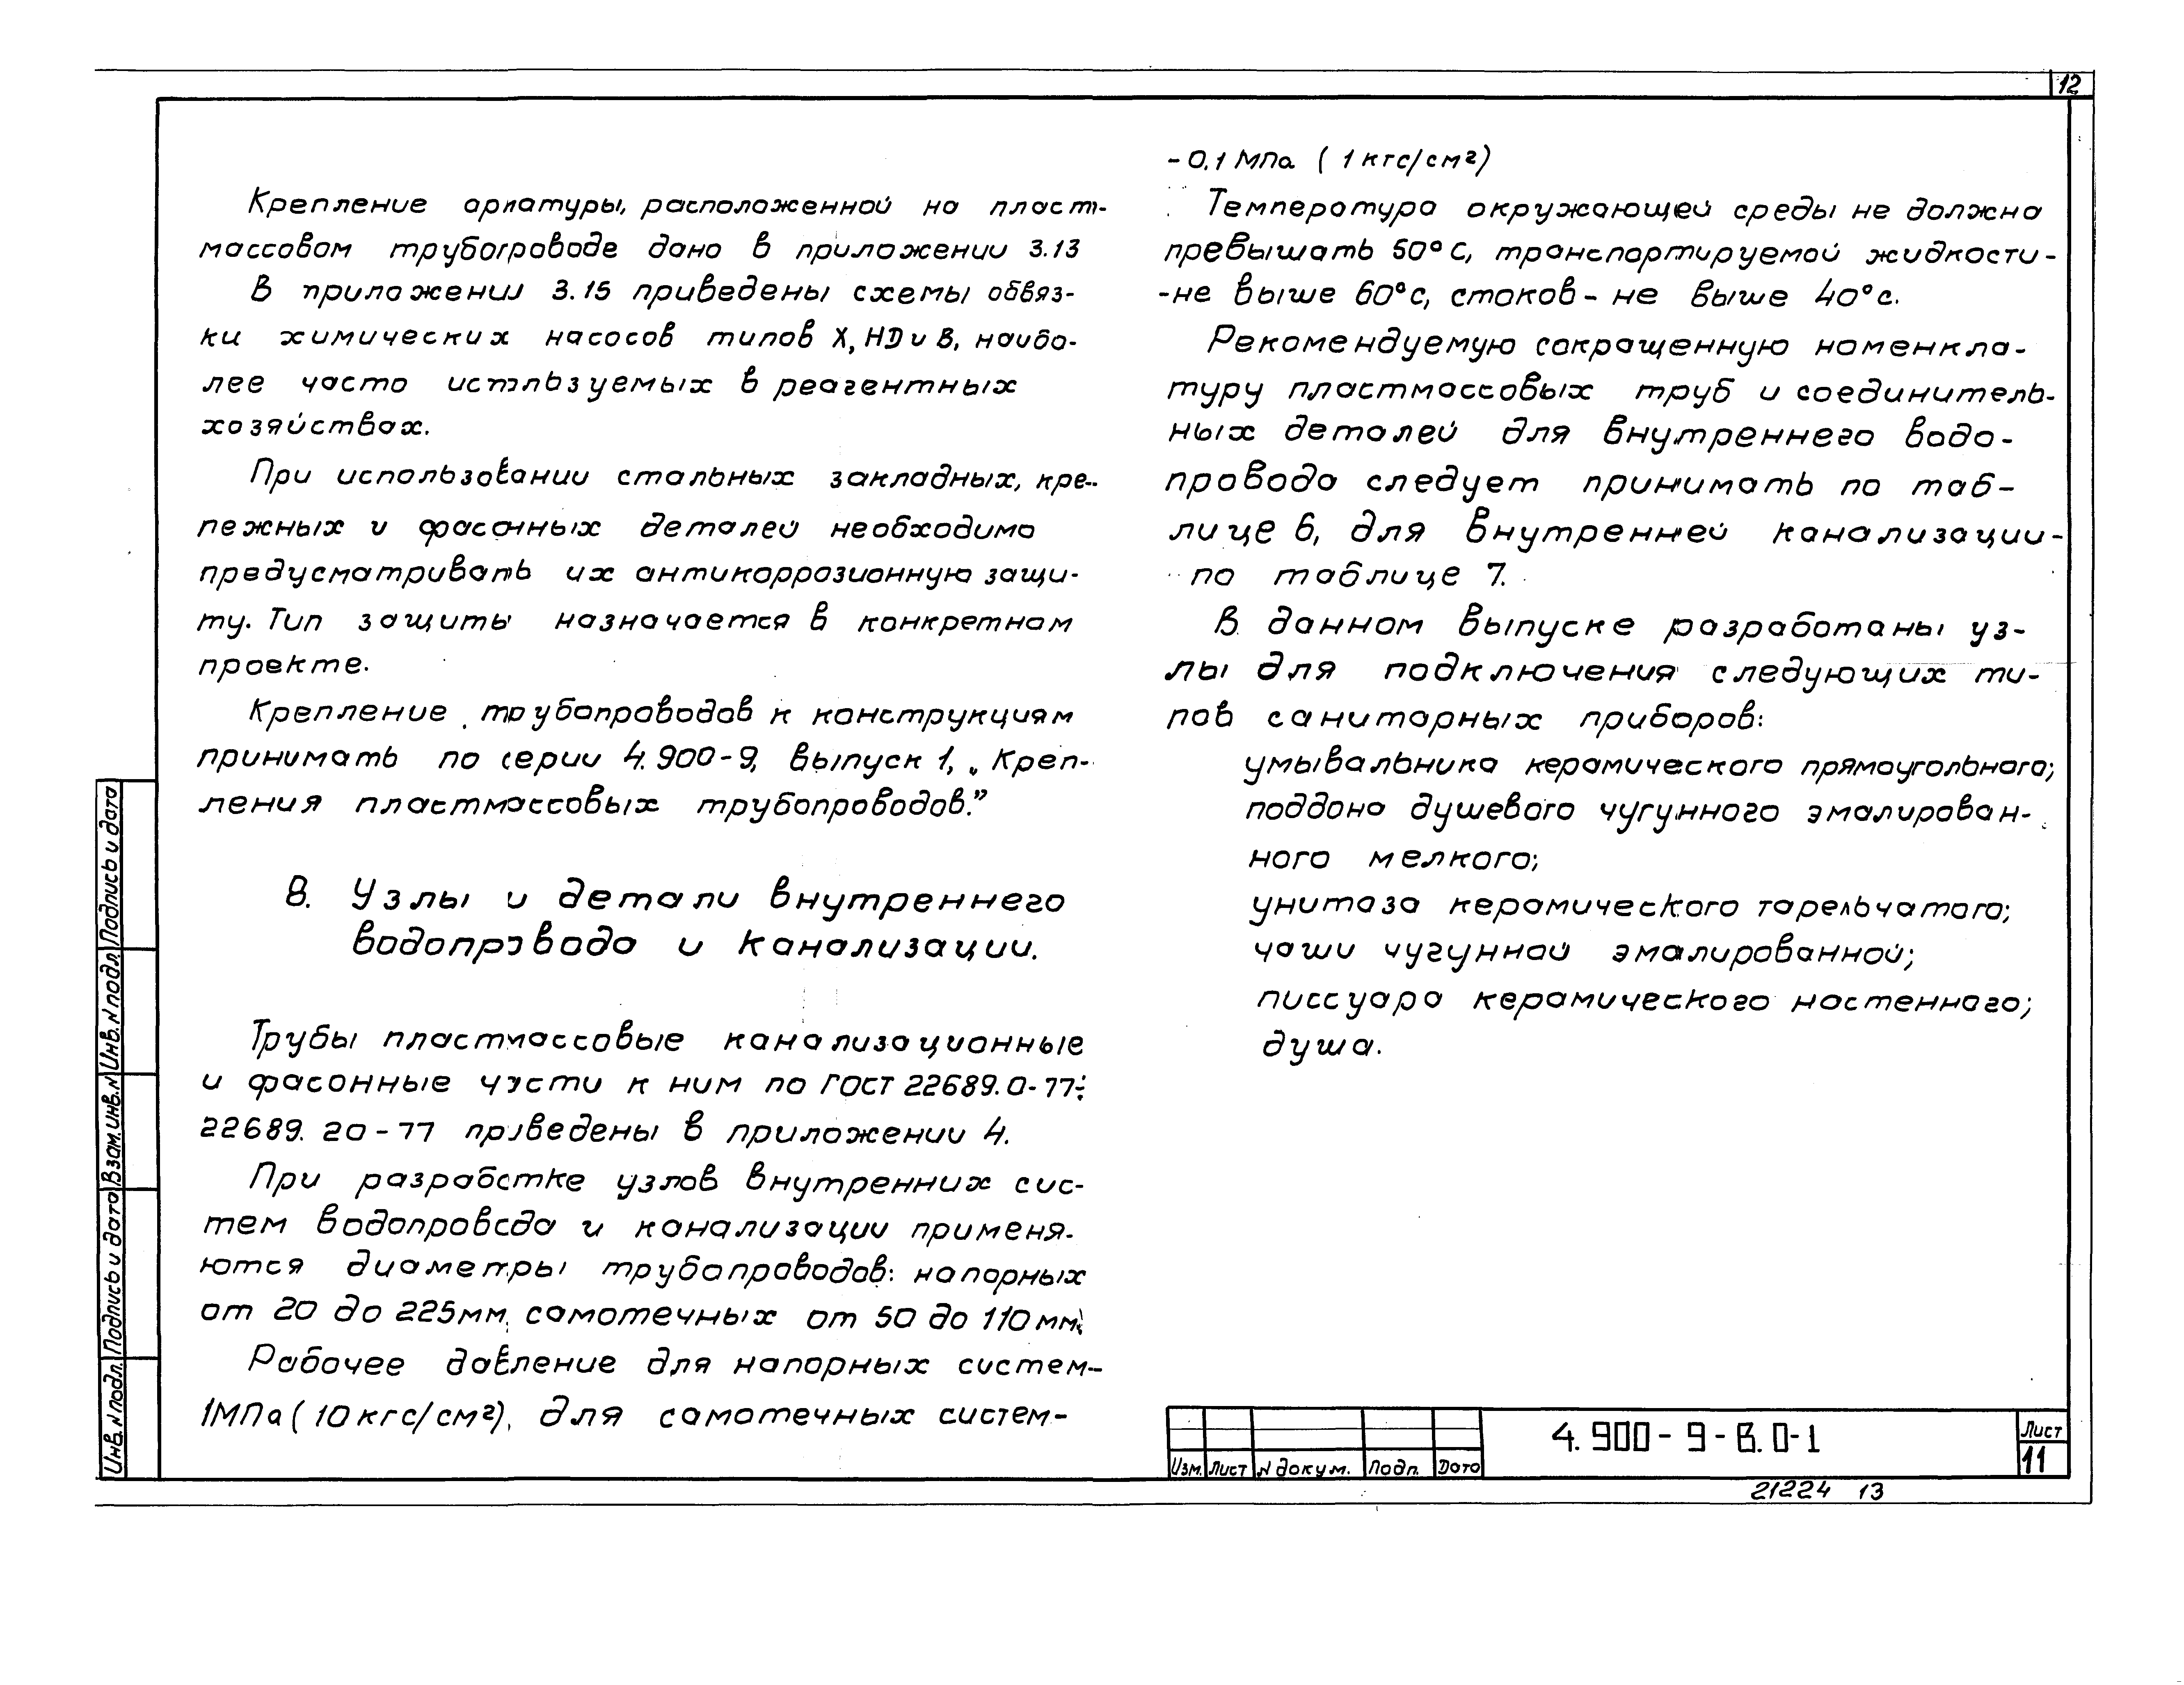 12
Крепление арматуры, расположенной на пласт-
массовом трубопроводе дано в приложении 3.13
В приложении 3.15 приведены схемы обвяз-
ки химических насосов типов Х, НД и В, наибо-
лее часто используемых в реагентных
хозяйствах.
При использовании стальных закладных, кре-
пежных и фасонных деталей необходимо
предусматривать их антикоррозионную защи-
ту. Тип защиты назначается в конкретном
проекте.
Крепление трубопроводов к конструкциям
принимать по серии 4.900-9, выпуск 1, „Креп-
ления пластмассовых трубопроводов.”
8. Узлы и детали внутреннего
водопровода и канализации.
Трубы пластмассовые канализационные
и фасонные части к ним по ГОСТ 22689.0-77÷
22689.20-77 приведены в приложении 4.
При разработке узлов внутренних сис-
тем водопровода и канализации применя-
ются диаметры трубопроводов: напорных
от 20 до 225мм, самотечных от 50 до 110мм.
Рабочее давление для напорных систем-
1МПа (10кгс/см²), для самотечных систем-
-0,1МПа (1кгс/см²)
Температура окружающей среды не должна
превышать 50°С, транспортируемой жидкости-
-не выше 60°С, стоков- не выше 40°С.
Рекомендуемую сокращенную номенкла-
туру пластмассовых труб и соединитель-
ных деталей для внутреннего водо-
провода следует принимать по таб-
лице 6, для внутренней канализации-
по таблице 7.
В данном выпуске разработаны уз-
лы для подключения следующих ти-
пов санитарных приборов:
умывальника керамического прямоугольного;
поддона душевого чугунного эмалирован-
ного мелкого;
унитаза керамического тарельчатого;
чаши чугунной эмалированной;
писсуара керамического настенного;
душа.
Инв. N подл. Подпись и дата Взам. инв. N Инв. N подл. Подпись и дата
Изм. Лист N докум. Подп. Дата
4.900-9-В.0-1
Лист
11
21224 13